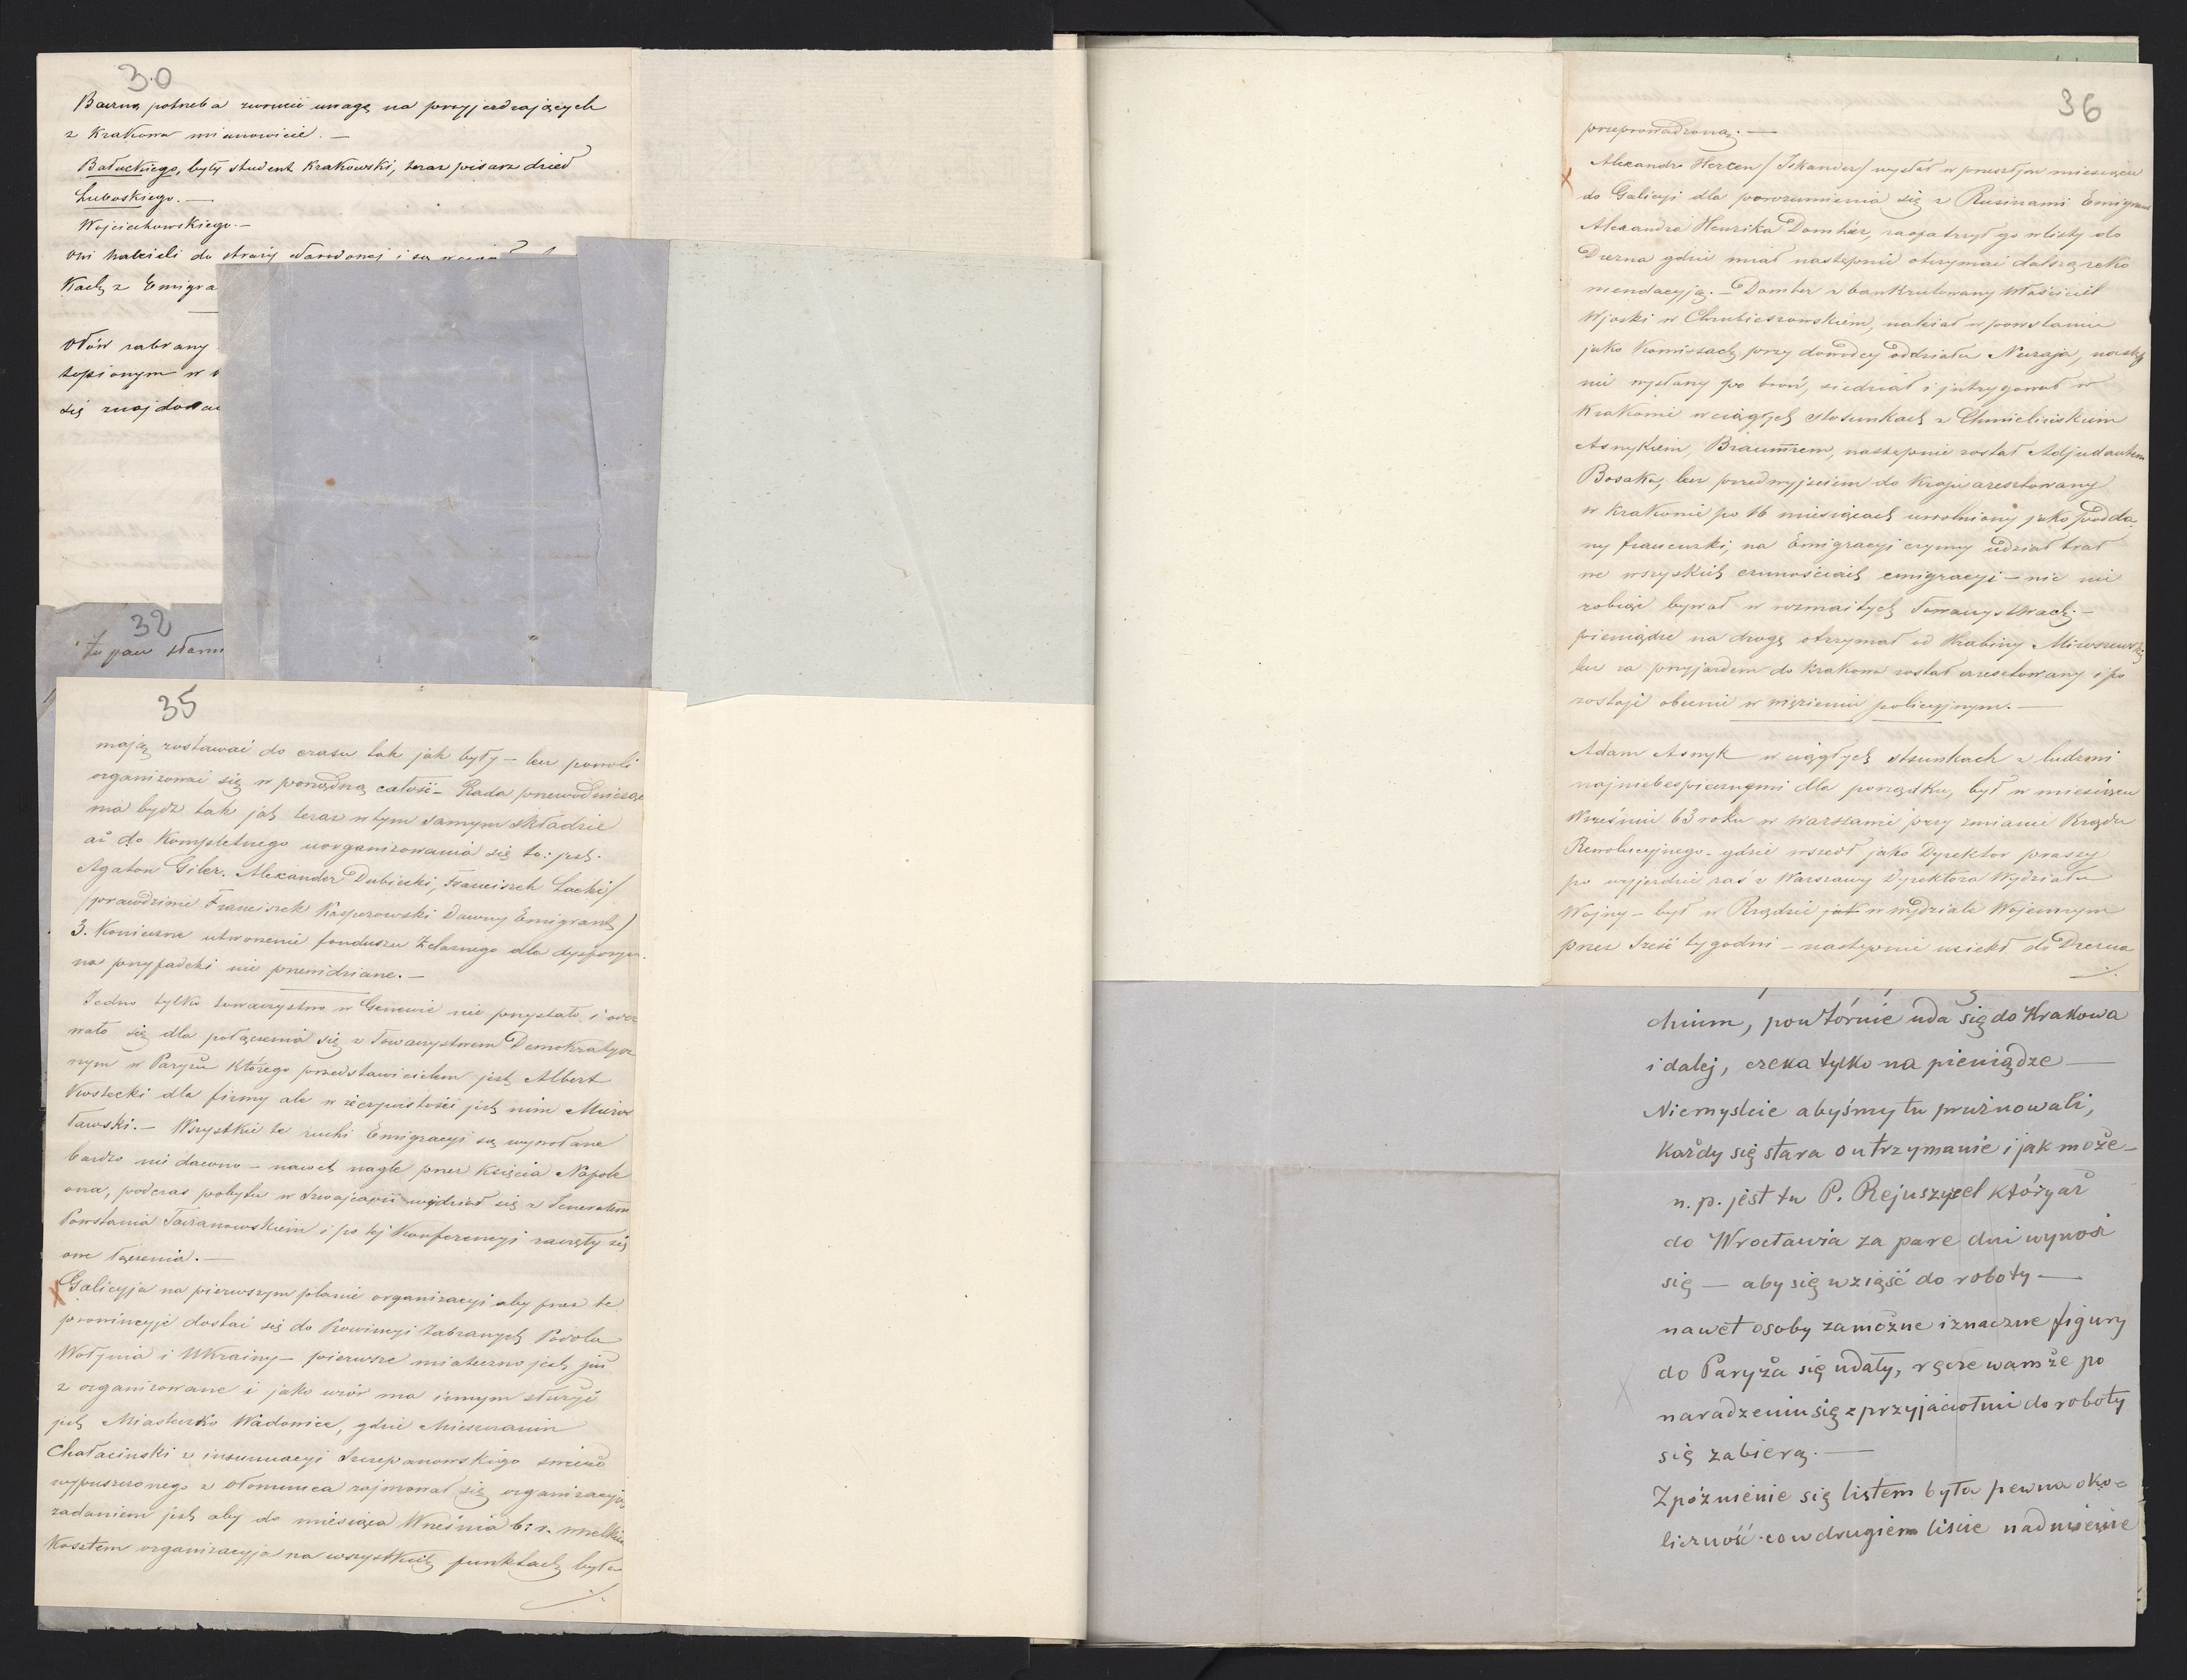 30
Baczną potrzeba zwrócić uwagę na przyjezdzających
z Krakowa mianowicie. —
Bałuckiego, były student Krakowski, teraz pisarz dzieł
Lubowskiego. —
Wojciechowskiego. —
Oni należeli do straży Narodowej i są w
Kach z Emigra
Ołów zabrany
topionym w
się znajdowa
32
Tu pan
35
mają zostawać do czasu tak jak były — lecz powoli
organizować się w porządną całość — Rada przewodnicząca
ma bydz tak jak teraz w tym samym składzie
aż do Kompletnego uorganizowania się to: jest.
Agaton Giler. Alexander Dubiecki, Franciszek Łacki/
/prawdziwie Franciszek Kasperowski Dawny Emigrant/
3. Konieczne utworzenie funduszu Żelaznego dla
na przypadki nie przewidziane. —
Jedno tylko towarzystwo w Genewie nie przystało i
wało się dla połączenia się z Towarzystwem Demokratycz
nym w Paryżu Którego przedstawicielem jest Albert
dla firmy ale w rzeczywistości jest nim Miero
sławski. — Wszystkie te ruchi Emigracyi są wywołane
bardzo nie dawno — nawet nagle przez księcia Napole
ona, podczas pobytu w Szwajcarii widział się z Jenerałem
Powstania Taczanowskiem i po tej Konferencyi zaczęły się
one łączenia. —
Galicyja na pierwszym planie organizacyi aby przez te
prowincyje dostać się do Prowincyi Zabranych Podola
Wołynia i Ukrainy — pierwsze miasteczko jest już
zorganizowane i jako wzór ma innym służyć
jest Miasteczko Wadowice, gdzie Mieszczanin
Chałaciński z insinuacyi Szczepanowskiego świeżo
wypuszczonego z Ołomuńca zajmował się organizacyją
zadaniem jest aby do miesiąca Września b: r. wielkim
Kosztem organizacyja na wszystkich punktach była
36
przeprowadzoną. —
Alexandr Hercen /Iskander/ wysłał w przeszłym miesiącu
do Galicyi dla porozumienia się z Rusinami Emigranta
Alexandra Henrika Dombér, zaopatrzył go w listy do
Drezna gdzie miał następnie otrzymać dalszą reko
mendacyją. — Dombér zbankrutowany Właściciel
Wjoski w Chrubieszowskiem, należał w powstaniu
jako Komissarz przy dowodcy oddziału Neczaja, następ
nie wysłany po broń, siedział i jntrygował w
Krakowie w ciągłych stosunkach z Chmielińskiem
Asnykiem, następnie został Adjudantem
Bosaka, lecz przed wyjściem do Kraju aresztowany
w Krakowie po 16 miesiącach uwolniony jako podda
ny francuzki, na Emigracyi czynny udział brał
we wszyskich czynnościach emigracyi — nic nie
robiąc bywał w rozmaitych Towarzystwach. —
pieniądze na drogę otrzymał od Hrabiny
lecz za przyjazdem do Krakowa został aresztowany i po
zostaje obecnie w więzieniu policyjnym. —
Adam Asnyk w ciągłych stsunkach z ludzmi
najniebespiecznymi dla porządku, był w miesiącu
Wrześniu 63 roku w Warszawie przy zmianie Rządu
Rewolucyjnego. gdzie wszedł jako Dyrektor prassy
po wyjezdzie zaś z Warszawy Dyrektora Wydziału
Wojny — był w Rządzie jak w wydziale Wojennym
przez sześć tygodni — następnie uciekł do Drezna
chium, powtórnie uda się do Krakowa
i dalej, czeka tylko na pieniądze —
Niemyslcie abyśmy tu prużnowali,
Każdy się stara o utrzymanie i jak może —
n.p. jest tu P. który aż
do Wrocławia za pare dni wynosi
się — aby się wziąść do roboty —
nawet osoby zamożne i znaczne figury
do Paryża się udały, ręcze wam że po
naradzeniu się z przyjaciołmi do roboty
się zabiera. —
Zpóznienie się listem była pewna oko=
liczność co w drugiem liscie nadmienie